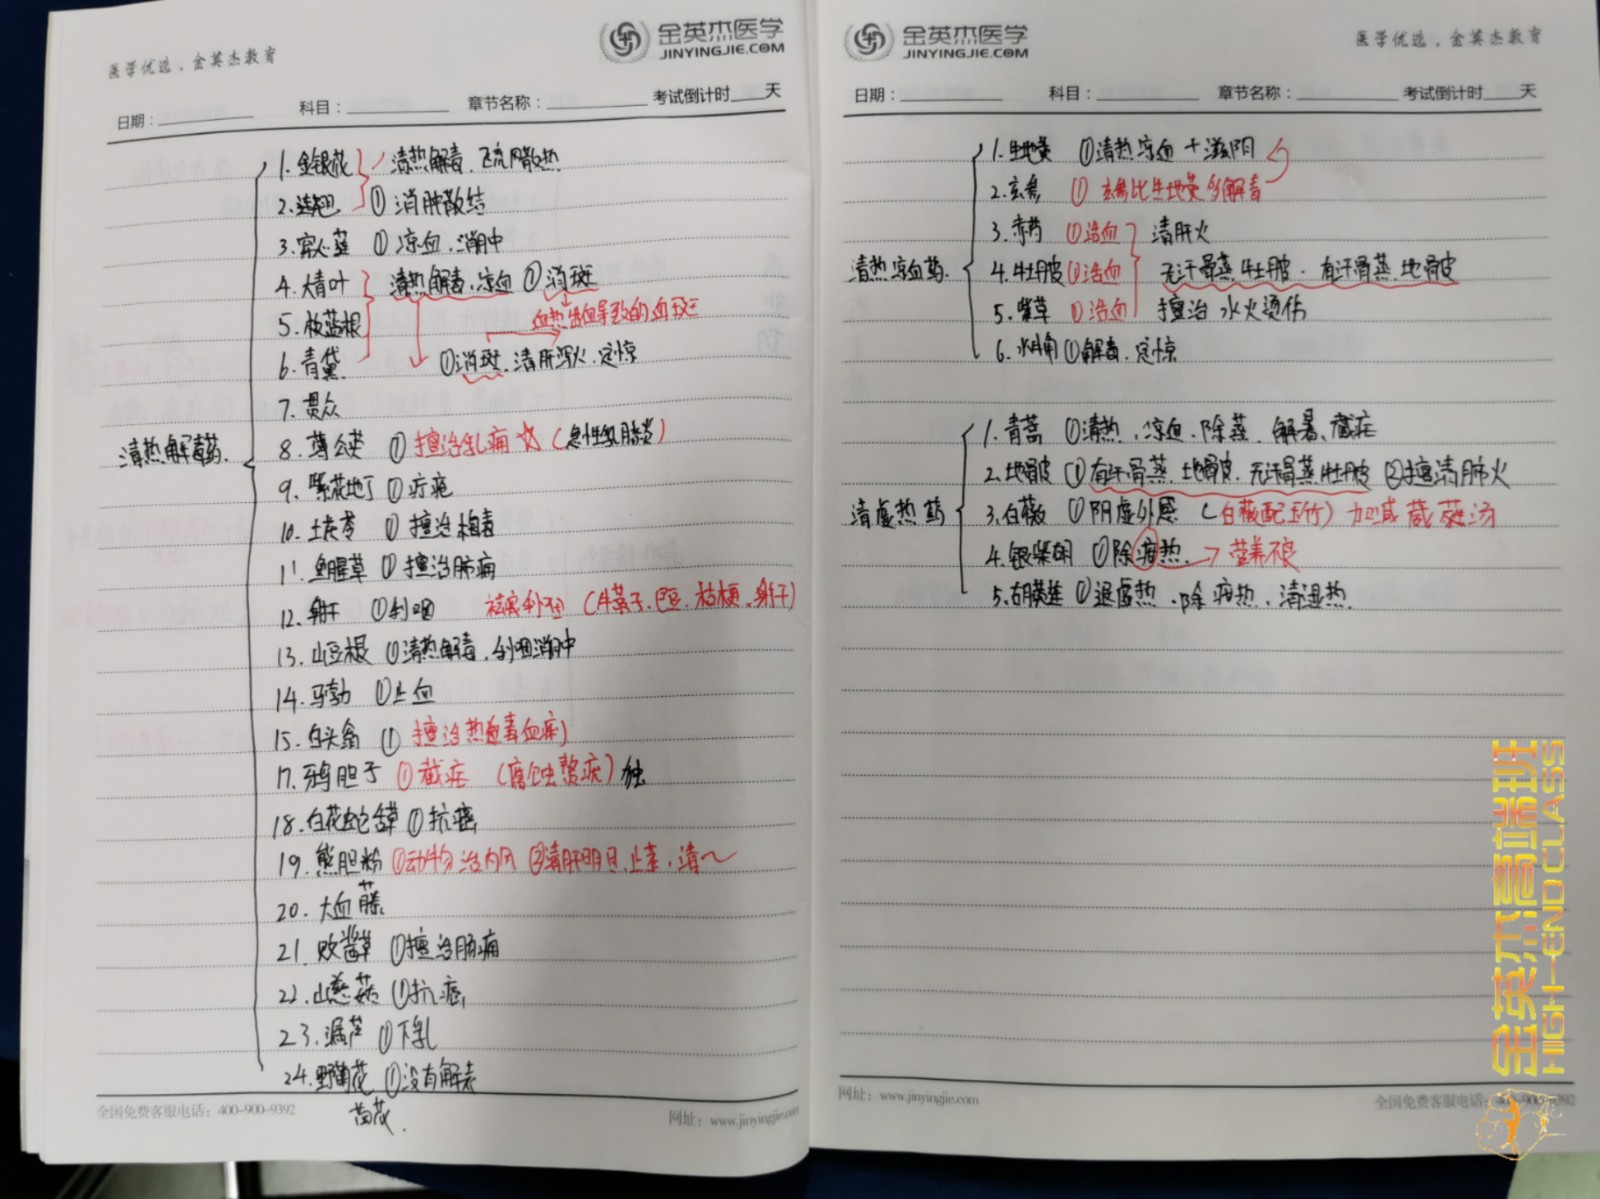 医学优选，金英杰教育
金英杰医学
JINYINGJIE.COM
日期： 科目： 章节名称： 考试倒计时 天
清热解毒药
1. 金银花 清热解毒、疏风散热
2. 连翘 ① 消肿散结
3. 穿心莲 ① 凉血、消肿
4. 大青叶 清热解毒、凉血 ① 消斑
5. 板蓝根 血热出血导致的血斑
6. 青黛 ①消斑、清肝泻火、定惊
7. 贯众
8. 蒲公英 ① 擅治乳痈 ☆（急性乳腺炎）
9. 紫花地丁 ① 疔疮
10. 土茯苓 ① 擅治梅毒
11. 鱼腥草 ① 擅治肺痈
12. 射干 ①利咽 （牛蒡子、巴豆、桔梗、射干）
13. 山豆根 ①清热解毒、利咽消肿
14. 马勃 ①止血
15. 白头翁 ① 擅治热毒血痢
17. 鸦胆子 ① 截疟 （腐蚀赘疣）独
18. 白花蛇舌草 ① 抗癌
19. 熊胆粉 ①动物治内风 ②清肝明目、止 、清～
20. 大血藤
21. 败酱草 ①擅治肠痈
22. 山慈菇 ①抗癌
23. 漏芦 ①下乳
24. 野菊花 ①没有解表
全国免费客服电话：400-900-9392
网址：www.jinyingjie.com
金英杰医学
JINYINGJIE.COM
医学优选，金英杰教育
日期： 科目： 章节名称： 考试倒计时 天
清热凉血药
1. 生地黄 ①清热凉血+滋阴
2. 玄参 ① 玄参比生地黄多解毒
3. 赤芍 ①活血 清肝火
4. 牡丹皮 ①活血 无汗骨蒸牡丹皮、有汗骨蒸地骨皮
5. 紫草 ①活血 擅治水火烫伤
6. 水牛角 ①解毒、定惊
清虚热药
1. 青蒿 ①清热、凉血、除蒸、解暑、截疟
2. 地骨皮 ①有汗骨蒸、地骨皮、无汗骨蒸牡丹皮 ②擅清肺火
3. 白薇 ①阴虚外感（白薇配玉竹）加减葳蕤汤
4. 银柴胡 ①除疳热→营养不良
5. 胡黄连 ①退虚热、除疳热、清湿热
网址：www.jinyingjie.com
全国免费客服电话：400-900-9392
金英杰高端班
HIGH-END CLASS